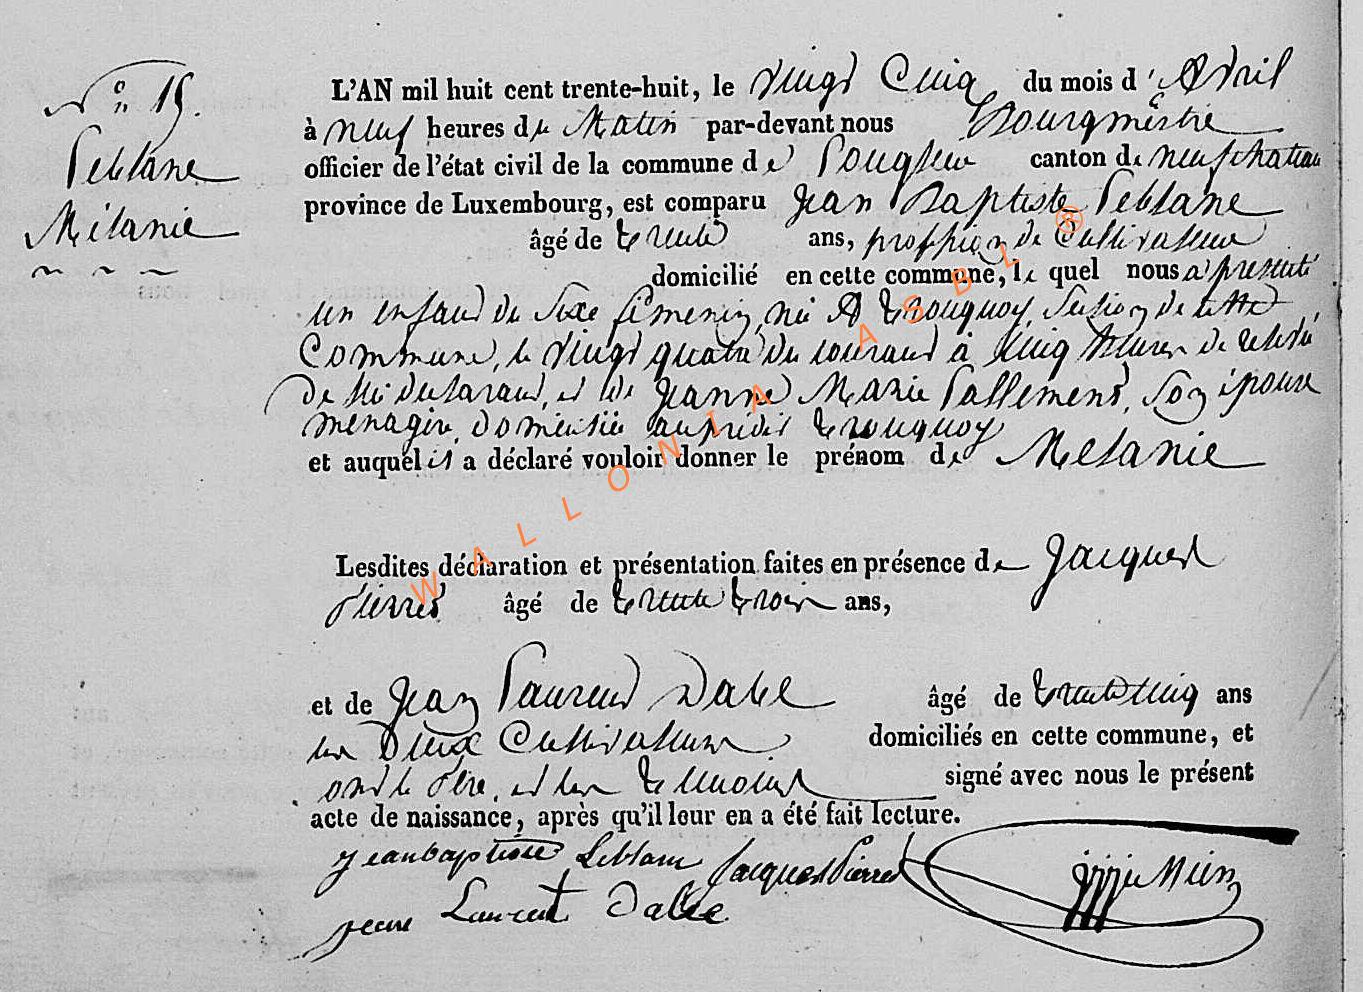 N° 15.
Leblanc
Mélanie
L'AN mil huit cent trente-huit, le vingt Cinq du mois d'Avril
à neuf heures du Matin par-devant nous Bourgmestre
officier de l'état civil de la commune de canton de neufchateau
province de Luxembourg, est comparu Jean Baptiste Leblanc
âgé de trente ans, profession de Cultivateur
domicilié en cette commune, le quel nous a présenté
un enfant du Sexe féminin, née A tronquoy, Section de cette
Commune, le vingt quatre du courant à cinq heures de relevée
de lui déclarant, et de Jeanne Marie Lallemend, Son épouse
ménagère, domiciliée au prédit tronquoy
et auquel il a déclaré vouloir donner le prénom de Mélanie
Lesdites déclaration et présentation faites en présence de Jacques
Pierret âgé de trente trois ans,
et de Jean Laurent Dabe âgé de trente cinq ans
les Deux Cultivateurs domiciliés en cette commune, et
ont le Père, et les témoins signé avec nous le présent
acte de naissance, après qu'il leur en a été fait lecture.
Jean baptiste Leblanc Jacques Pierret
jean Laurent Dabe
WALLONIA ASBL ®